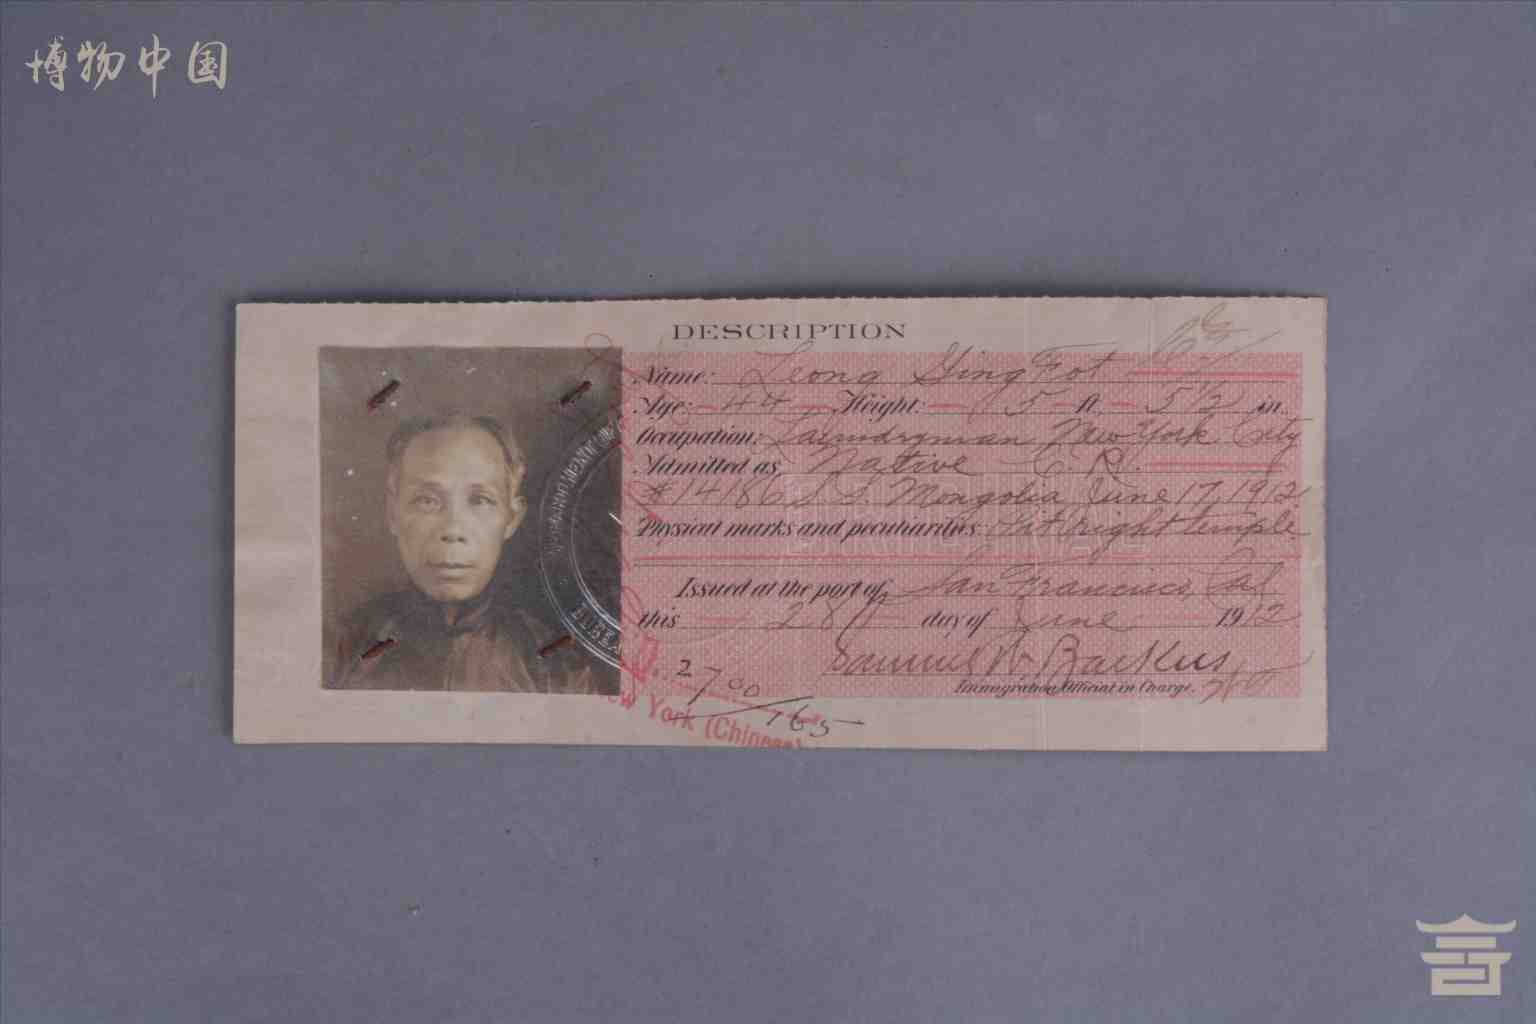 博物中国
DESCRIPTION
Name: Leong Ging Fot
Age: 44 Height: 5 ft. 5 1/2 in.
Occupation: Laundryman New York City
Admitted as Native C. R.
#14186 S. S. Mongolia June 17, 1912
Physical marks and peculiarities: Pit right temple
ORIGINAL
Issued at the port of San Francisco, Cal
this 28 day of June 1912
Samuel W Backus
Immigration Official in Charge.
2700/165
New York (Chinese)
BUREA